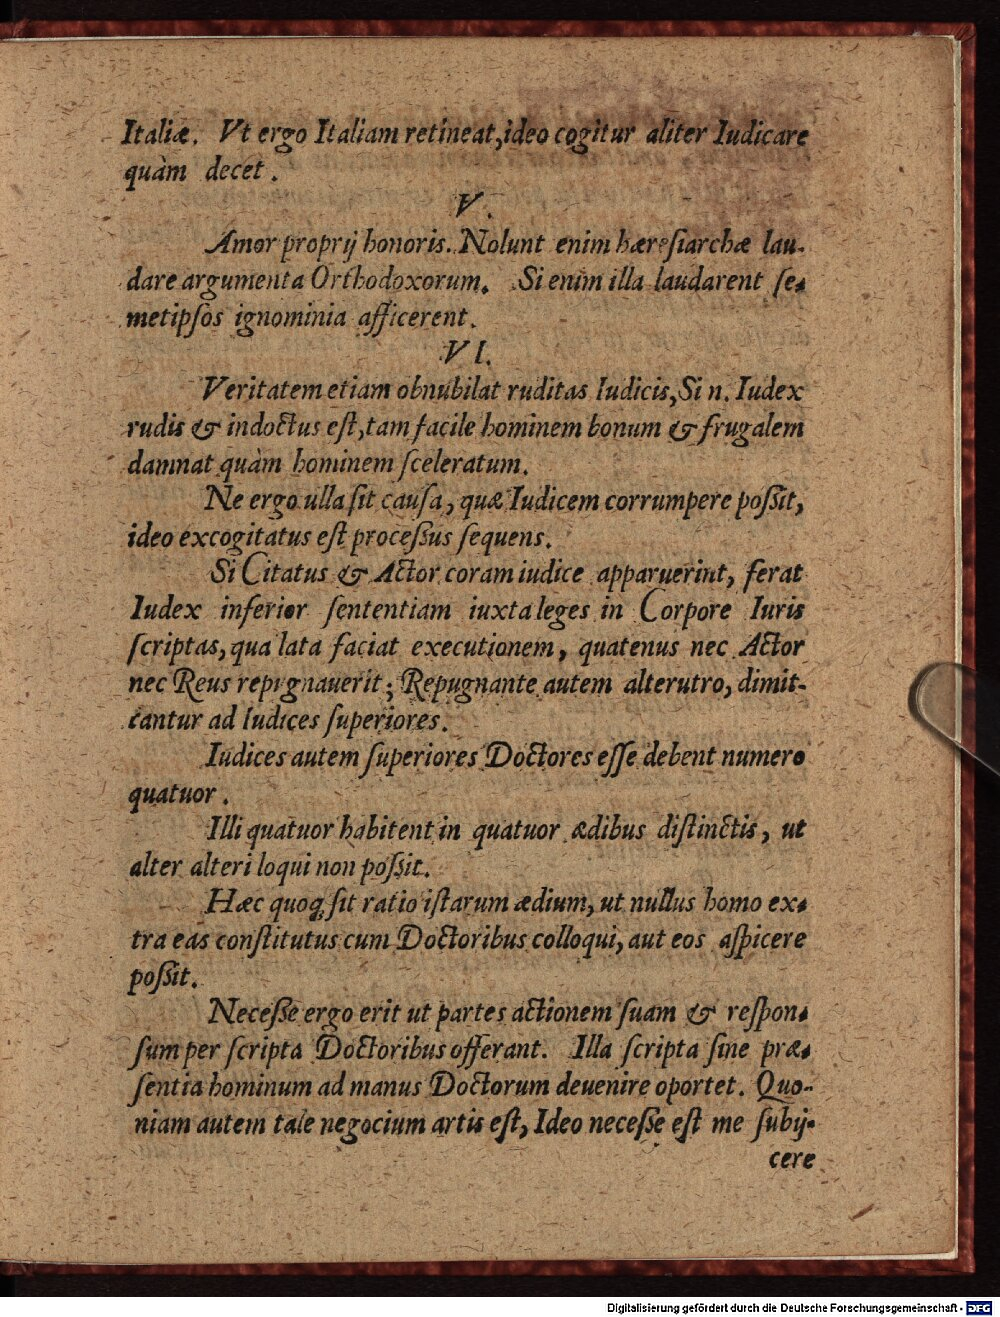 Italiæ. Vt ergo Italiam retineat, ideo cogitur aliter Iudicare
quàm decet.
V.
Amor proprij honoris. Nolunt enim hæresiarchæ lau-
dare argumenta Orthodoxorum. Si enim illa laudarent se-
metipsos ignominia afficerent.
VI.
Veritatem etiam obnubilat ruditas Iudicis, Si n. Iudex
rudis & indoctus est, tam facile hominem bonum & frugalem
damnat quàm hominem sceleratum.
Ne ergo ulla sit causa, quæ Iudicem corrumpere possit,
ideo excogitatus est processus sequens.
Si Citatus & Actor coram iudice apparuerint, ferat
Iudex inferior sententiam iuxta leges in Corpore Iuris
scriptas, qua lata faciat executionem, quatenus nec Actor
nec Reus repugnauerit; Repugnante autem alterutro, dimit-
tantur ad Iudices superiores.
Iudices autem superiores Doctores esse debent numero
quatuor.
Illi quatuor habitent in quatuor ædibus distinctis, ut
alter alteri loqui non possit.
Hæc quoq; sit ratio istarum ædium, ut nullus homo ex-
tra eas constitutus cum Doctoribus colloqui, aut eos aspicere
possit.
Necesse ergo erit ut partes actionem suam & respon-
sum per scripta Doctoribus offerant. Illa scripta sine præ-
sentia hominum ad manus Doctorum deuenire oportet. Quo-
niam autem tale negocium artis est, Ideo necesse est me subij-
cere
Digitalisierung gefördert durch die Deutsche Forschungsgemeinschaft - DFG